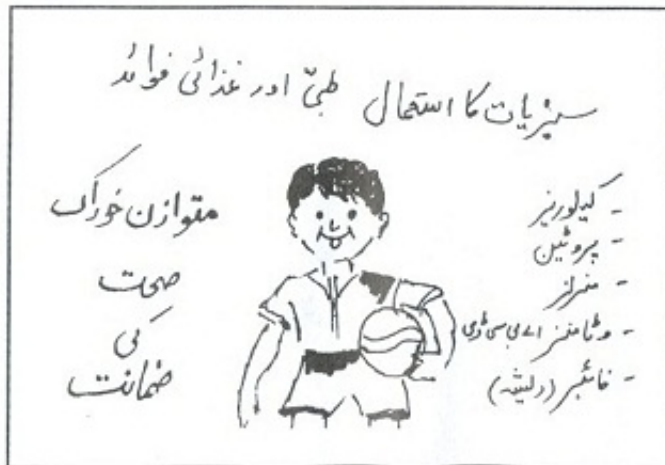 سبزیات کا استعمال طبیّ اور غذائی فوائد
- کیلوریز
- پروٹین
- منرلز
- وٹامنز اے بی سی ڈی
- فائبر (ریشہ)
متوازن خوراک
صحت
کی
ضمانت